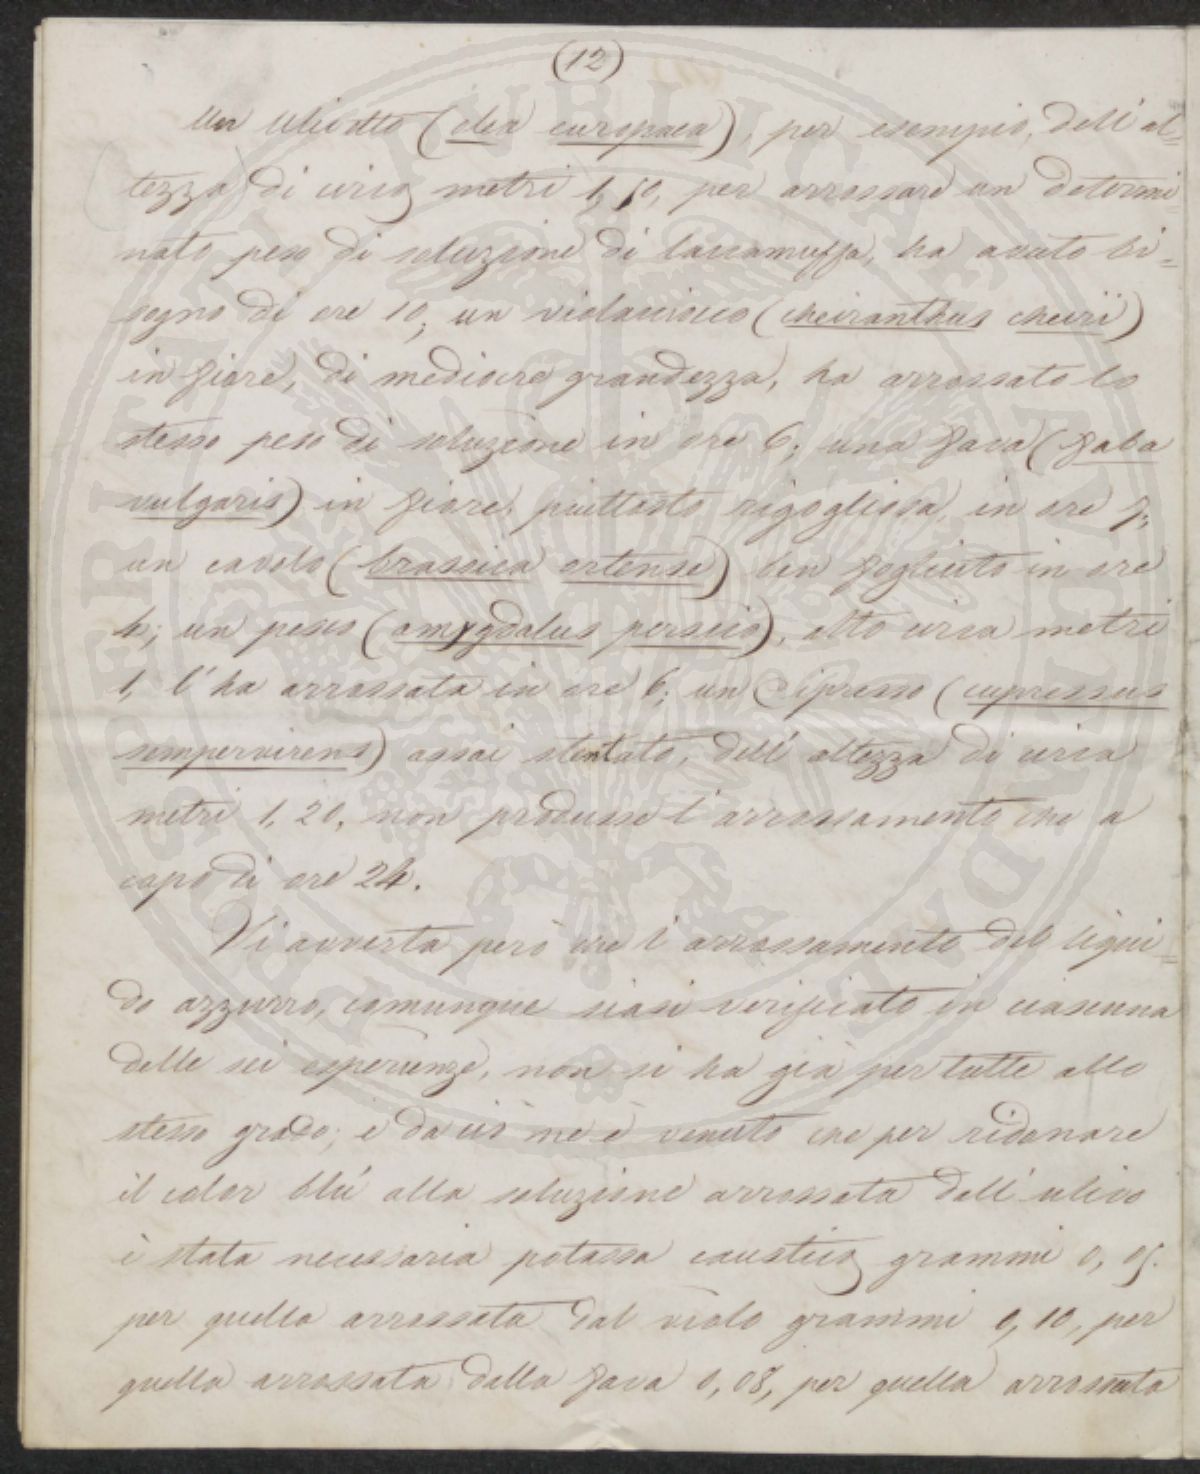 (12)
Un ulivetto (olea europaea), per esempio, dell'al=
tezza di circa metri 1,50, per arrossare un determi=
nato peso di soluzione di laccamuffa, ha avuto bi=
sogno di ore 10; un violacciocco (cheiranthus cheirii)
in fiore, di mediocre grandezza, ha arrossato lo
stesso peso di soluzione in ore 6; una fava (faba
vulgaris) in fiore, piuttosto rigogliosa, in ore
un cavolo (brassica ortense) ben fogliuto in ore
4; un pesco (amygdalus persica), alto circa metri
1, l'ha arrossata in ore 6; un Cipresso (cupressus
sempervirens) assai stentato, dell'altezza di circa
metri 1,20, non produsse l'arrossamento che a
capo di ore 24.
Vi avverta però che l'arrossamento del liqui=
do azzurro, comunque siasi verificato in ciascuna
delle sei esperienze, non si ha già per tutte allo
stesso grado; e da ciò ne è venuto che per ridonare
il color blú alla soluzione arrossata dall'ulivo
è stata necessaria potassa caustica grammi 0,05.
per quella arrossata dal violo grammi 0,10, per
quella arrossata dalla fava 0,08, per quella arrossata
PERITI IVRIS PVBLICAE